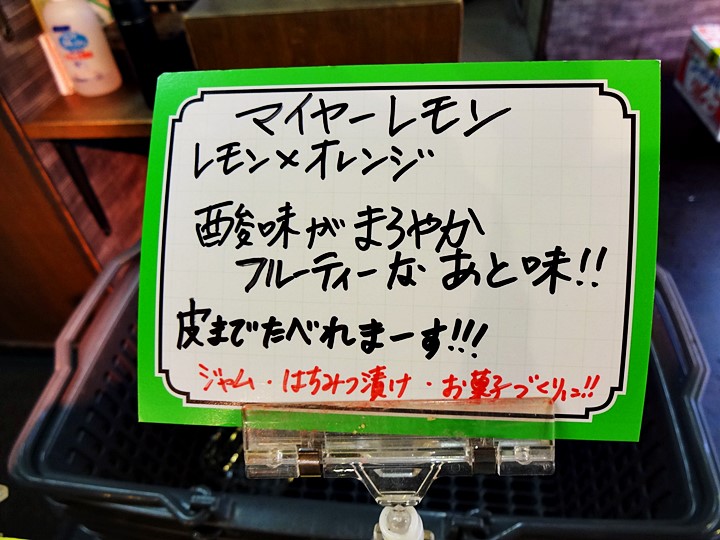 マイヤーレモン
レモン×オレンジ
酸味がまろやか
フルーティーなあと味!!
皮までたべれまーす!!!
ジャム・はちみつ漬け・お菓子づくりに!!